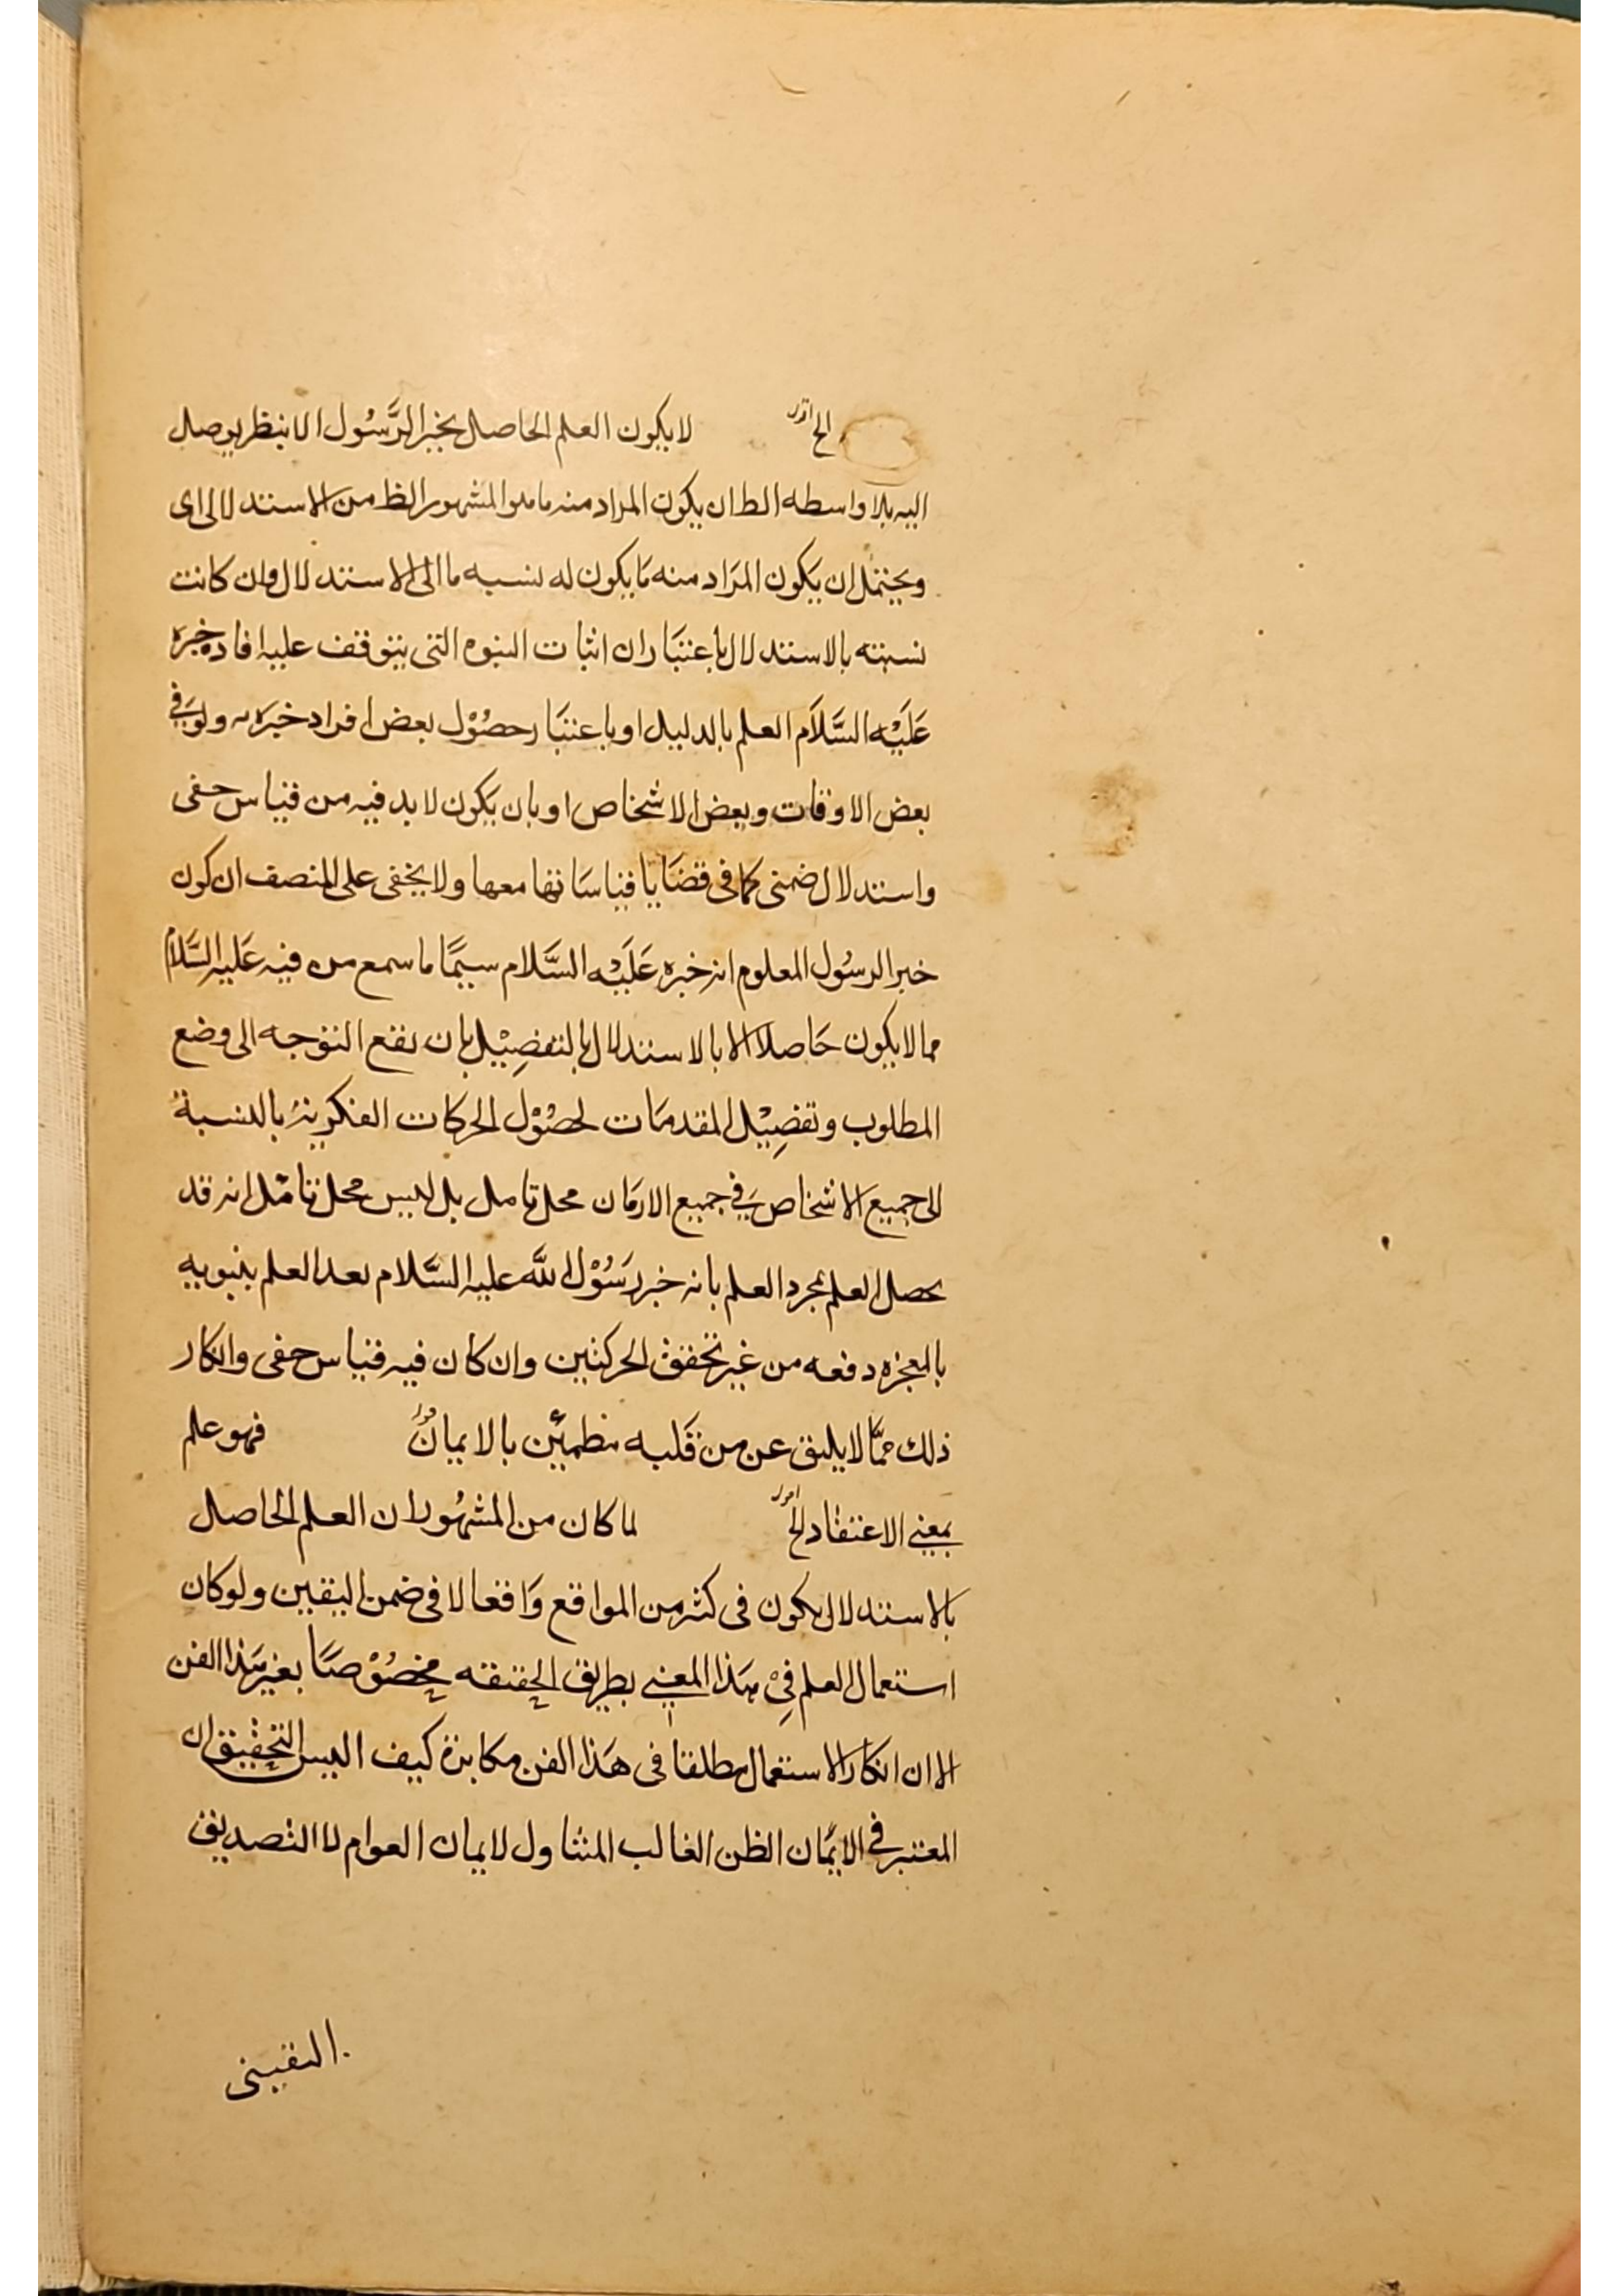 الخ اقول لا يكون العلم الحاصل بخبر الرَّسُول الا بنظر يوصل
اليه بلا واسطه الظ ان يكون المراد منه ما هو المشهور الظ من الاستدلالى اى
ويحتمل ان يكون المرَاد منه مَا يكون له نسبه ما الى الاستدلال وان كانت
نسبته بالاستدلال باعتبَار ان اثبات النبوه التى يتوقف عليه افاده خبره
عَلَيْه السَّلَام العلم بالدليل او باعتبَار حصُوْل بعض افراد خبره ولو فى
بعض الاوقات وبعض الاشخاص او بان يَكون لا بد فيه من قياس حفى
واستدلال ضمنى كما فى قضَايا قياسَاتها معها ولا يخفى على المنصف ان كون
خبر الرسُول المعلوم انه خبره عَلَيْه السَّلام سيمَا ما سمع من فيه عَليه السَّلام
مما لا يكون حَاصلا الا بالاستدلال بالتفصِيْل بان يقع التوجه الى وضع
المطلوب وتفصِيْل المقدمَات لحصُوْل الحركات الفكرية بالنسبة
الى جميع الاشخاص فِي جميع الازمَان محل تامل بل ليس محل تامّل انه قد
يحصل العلم بمجرد العلم بانه خبر رَسُوْل اللَّه عليه السَّلام بعد العلم بنبوبيه
بالمعجزه دفعه من غير تحقق الحركتين وان كان فيه قياس حفى وانكار
ذلك ممَّا لا يليق عن من قَلبه مطمئين بالايمان قوله فهو علم
بمعنى الاعتقاد الخ اقول لما كان من المشهُور ان العلم الحاصل
بالاستدلال يكون فى كثر من المواقع وَاقعا لا فى ضمن اليقين ولو كان
استعمال العلم فِىْ هذا المعنى بطريق الحقيقه مخصُوْصًا بغير هَذا الفن
الا ان انكار الاستعمال مطلقا فى هَذا الفن مكابرة كيف اليس التحقيق ان
المعتبر فى الايمَان الظن الغالب المتناول لايمان العوام لا التصديق
اليقينى